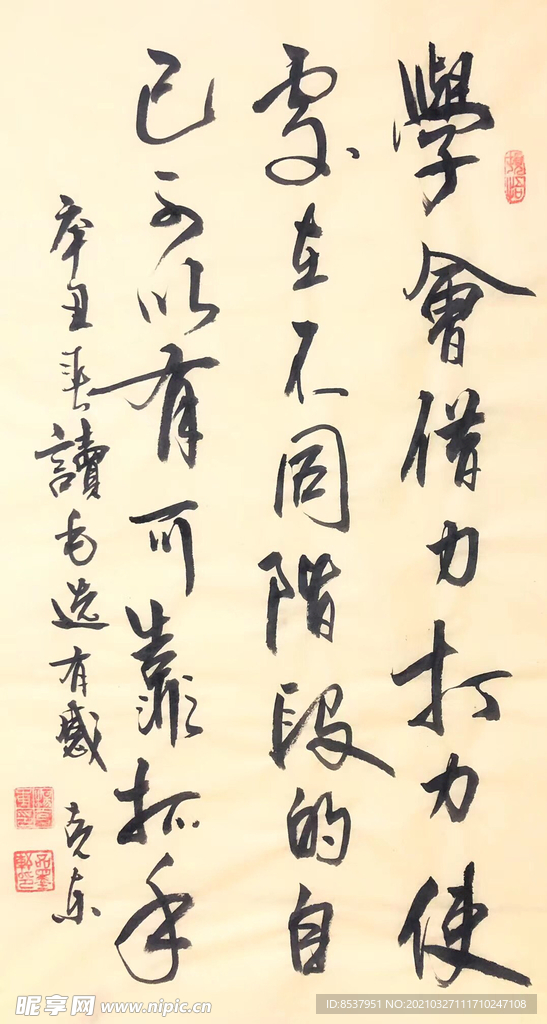 學會借力打力使
處在不同階段的自
己可以有可靠抓手
辛丑春讀毛选有感
昵享网 www.nipic.cn
ID:8537951 NO:20210327111710247108